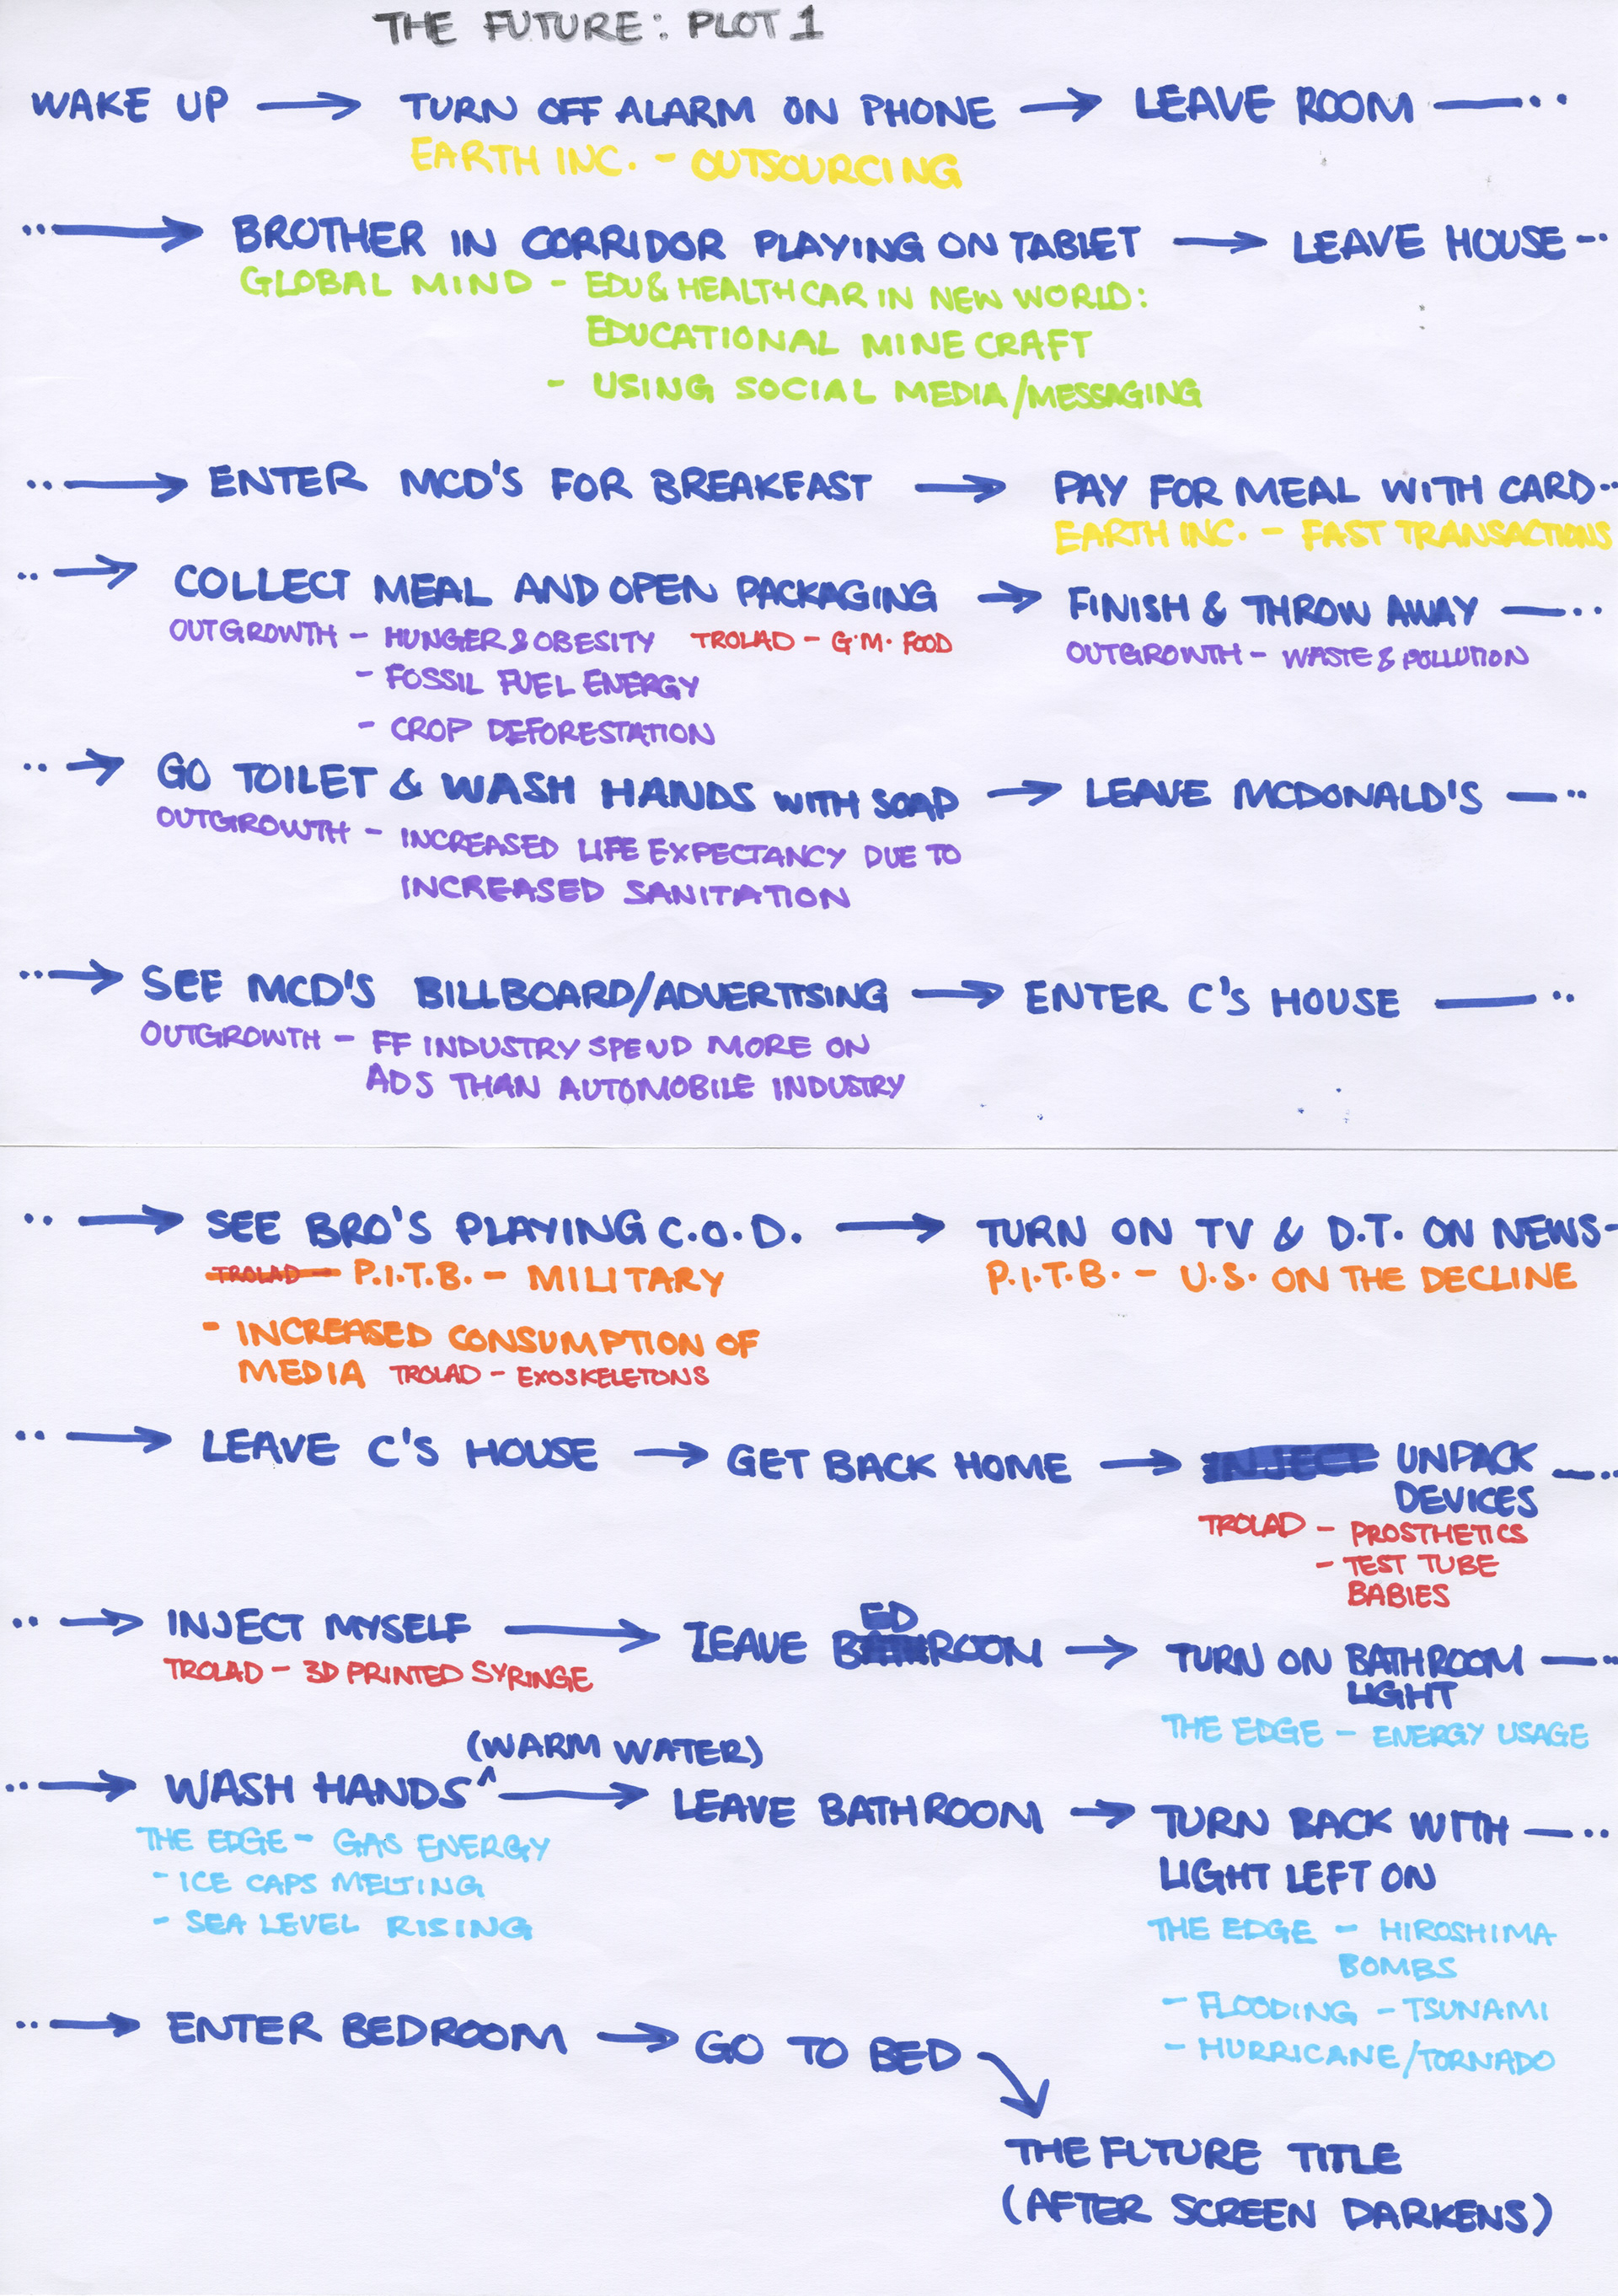 THE FUTURE: PLOT 1
WAKE UP → TURN OFF ALARM ON PHONE → LEAVE ROOM —··
EARTH INC. - OUTSOURCING
··→ BROTHER IN CORRIDOR PLAYING ON TABLET → LEAVE HOUSE -··
GLOBAL MIND - EDU & HEALTHCAR IN NEW WORLD:
EDUCATIONAL MINECRAFT
- USING SOCIAL MEDIA/MESSAGING
··→ ENTER MCD'S FOR BREAKFAST → PAY FOR MEAL WITH CARD··
EARTH INC. - FAST TRANSACTIONS
··→ COLLECT MEAL AND OPEN PACKAGING → FINISH & THROW AWAY —··
OUTGROWTH - HUNGER & OBESITY TROLAD - G.M. FOOD OUTGROWTH - WASTE & POLLUTION
- FOSSIL FUEL ENERGY
- CROP DEFORESTATION
··→ GO TOILET & WASH HANDS WITH SOAP → LEAVE MCDONALD'S —··
OUTGROWTH - INCREASED LIFE EXPECTANCY DUE TO
INCREASED SANITATION
··→ SEE MCD'S BILLBOARD/ADVERTISING → ENTER C'S HOUSE —··
OUTGROWTH - FF INDUSTRY SPEND MORE ON
ADS THAN AUTOMOBILE INDUSTRY
··→ SEE BRO'S PLAYING C.O.D. → TURN ON TV & D.T. ON NEWS-
TROLAD - P.I.T.B. - MILITARY P.I.T.B. - U.S. ON THE DECLINE
- INCREASED CONSUMPTION OF
MEDIA TROLAD - EXOSKELETONS
··→ LEAVE C'S HOUSE → GET BACK HOME → INJECT UNPACK —··
DEVICES
TROLAD - PROSTHETICS
- TEST TUBE
BABIES
··→ INJECT MYSELF → LEAVE BEDROOM → TURN ON BATHROOM —··
LIGHT
TROLAD - 3D PRINTED SYRINGE
THE EDGE - ENERGY USAGE
(WARM WATER)
··→ WASH HANDS^ → LEAVE BATHROOM → TURN BACK WITH —··
LIGHT LEFT ON
THE EDGE - GAS ENERGY
- ICE CAPS MELTING
- SEA LEVEL RISING
THE EDGE - HIROSHIMA
BOMBS
- FLOODING - TSUNAMI
- HURRICANE/TORNADO
··→ ENTER BEDROOM → GO TO BED
THE FUTURE TITLE
(AFTER SCREEN DARKENS)